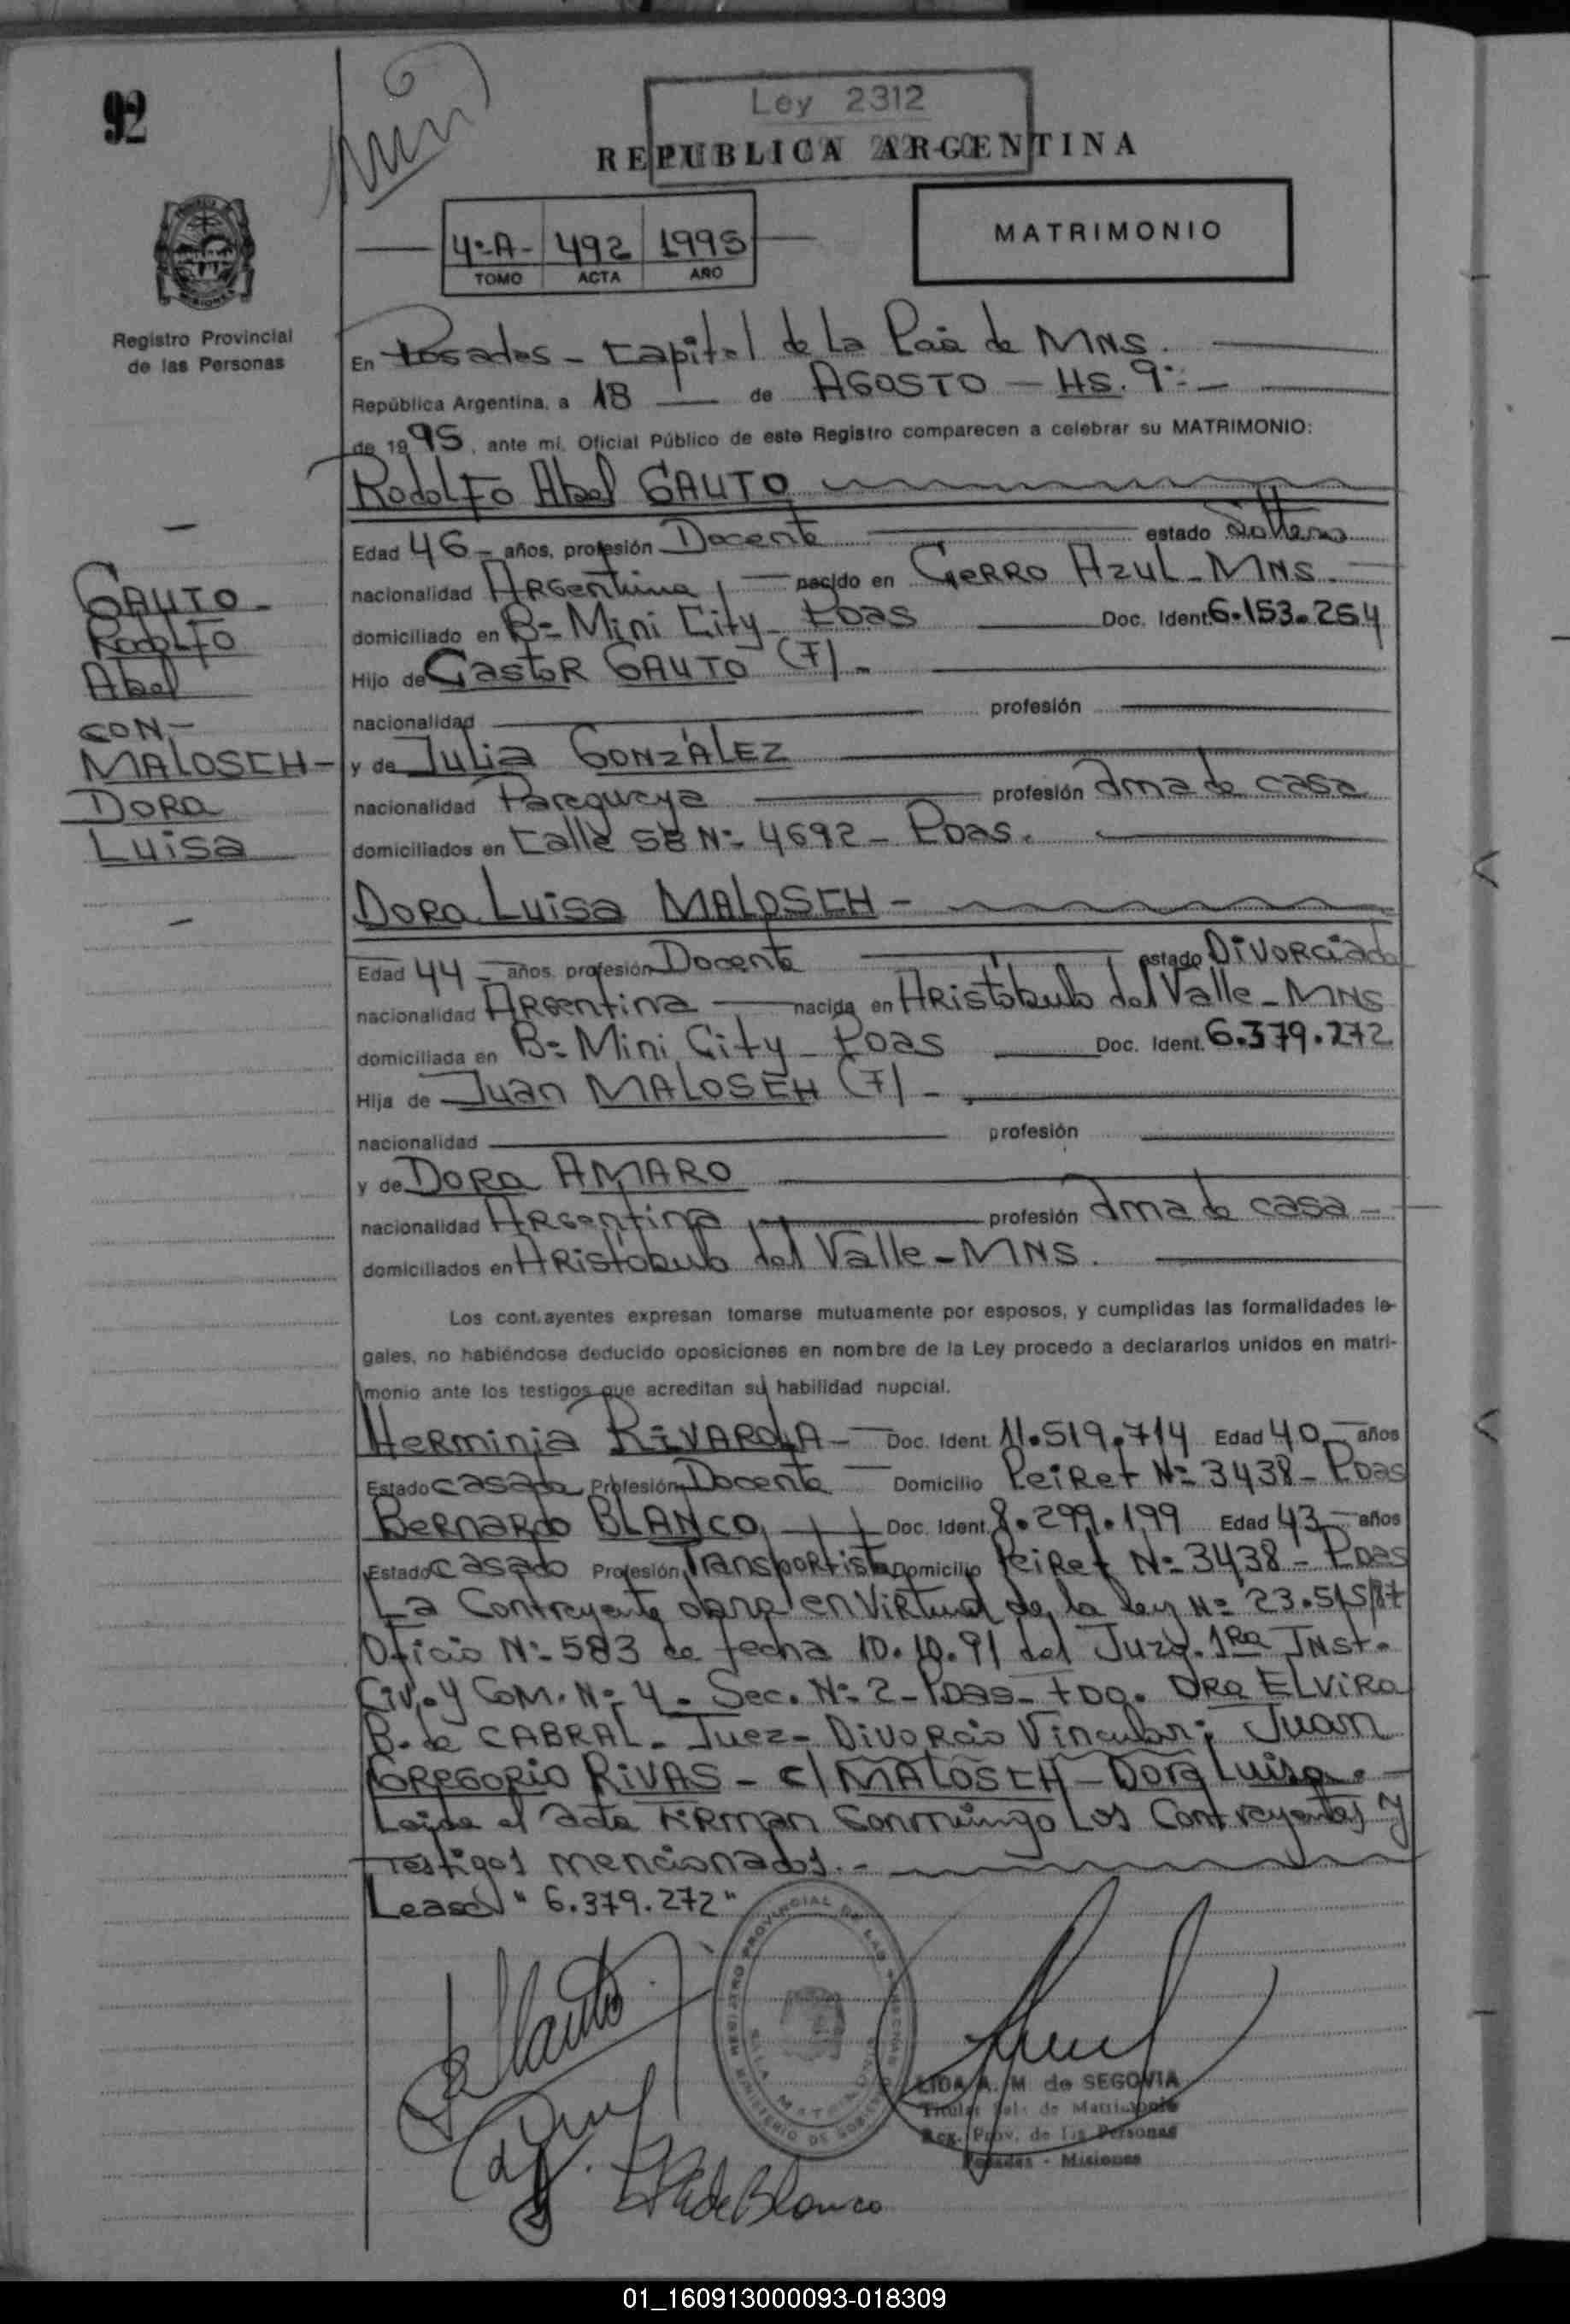 92
Ley 2312
REPUBLICA ARGENTINA
4º-A- 492 1995
TOMO ACTA AÑO
MATRIMONIO
Registro Provincial
de las Personas
En Posadas - Capital de la Pcia de MNS.
República Argentina, a 18 de AGOSTO - HS. 9:-
de 1995, ante mí, Oficial Público de este Registro comparecen a celebrar su MATRIMONIO:
Rodolfo Abel GAUTO
Edad 46 - años, profesión Docente estado Soltero
nacionalidad Argentina, nacido en Cerro Azul - MNS.
domiciliado en Bº Mini City - Pdas Doc. Ident. 6.153.254
Hijo de Gastor GAUTO (F) -
nacionalidad profesión
y de Julia GONZÁLEZ
nacionalidad Paraguaya profesión Ama de casa
domiciliados en Calle 58 Nº 4692 - Pdas.
GAUTO -
Rodolfo
Abel
CON -
MALOSCH -
Dora
Luisa
Dora Luisa MALOSCH -
Edad 44 - años, profesión Docente estado Divorciada
nacionalidad Argentina nacida en Aristóbulo del Valle - MNS
domiciliada en Bº Mini City - Pdas Doc. Ident. 6.379.272
Hija de Juan MALOSCH (F) -
nacionalidad profesión
y de Dora AMARO
nacionalidad Argentina profesión Ama de casa -
domiciliados en Aristóbulo del Valle - MNS.
Los contrayentes expresan tomarse mutuamente por esposos, y cumplidas las formalidades le-
gales, no habiéndose deducido oposiciones en nombre de la Ley procedo a declararlos unidos en matri-
monio ante los testigos que acreditan su habilidad nupcial.
Herminia RIVAROLA - Doc. Ident. 11.519.714 Edad 40 - años
Estado casada Profesión Docente Domicilio Peiret Nº 3438 - Pdas
Bernardo BLANCO, Doc. Ident. 8.299.199 Edad 43 - años
Estado casado Profesión Transportista Domicilio Peiret Nº 3438 - Pdas
La Contrayente obra en virtud de la ley Nº 23.515/87
Oficio Nº 583 de fecha 10.10.91 del Juzg. 1Ra Inst.
Civ. y Com. Nº 4. Sec. Nº 2 - Pdas - Fdo. Dra Elvira
B. de CABRAL - Juez - Divorcio Vincular: Juan
Gregorio RIVAS - c/ MALOSCH - Dora Luisa. -
Leida el acta firman conmigo los Contrayentes y
Testigos mencionados. -
Lease "6.379.272"
REGISTRO PROVINCIAL DE LAS PERSONAS
MINISTERIO DE GOBIERNO
LIDA A. M. de SEGOVIA
Titular de Matrimonio
Reg. Prov. de las Personas
Posadas - Misiones
de Blanco
01_160913000093-018309